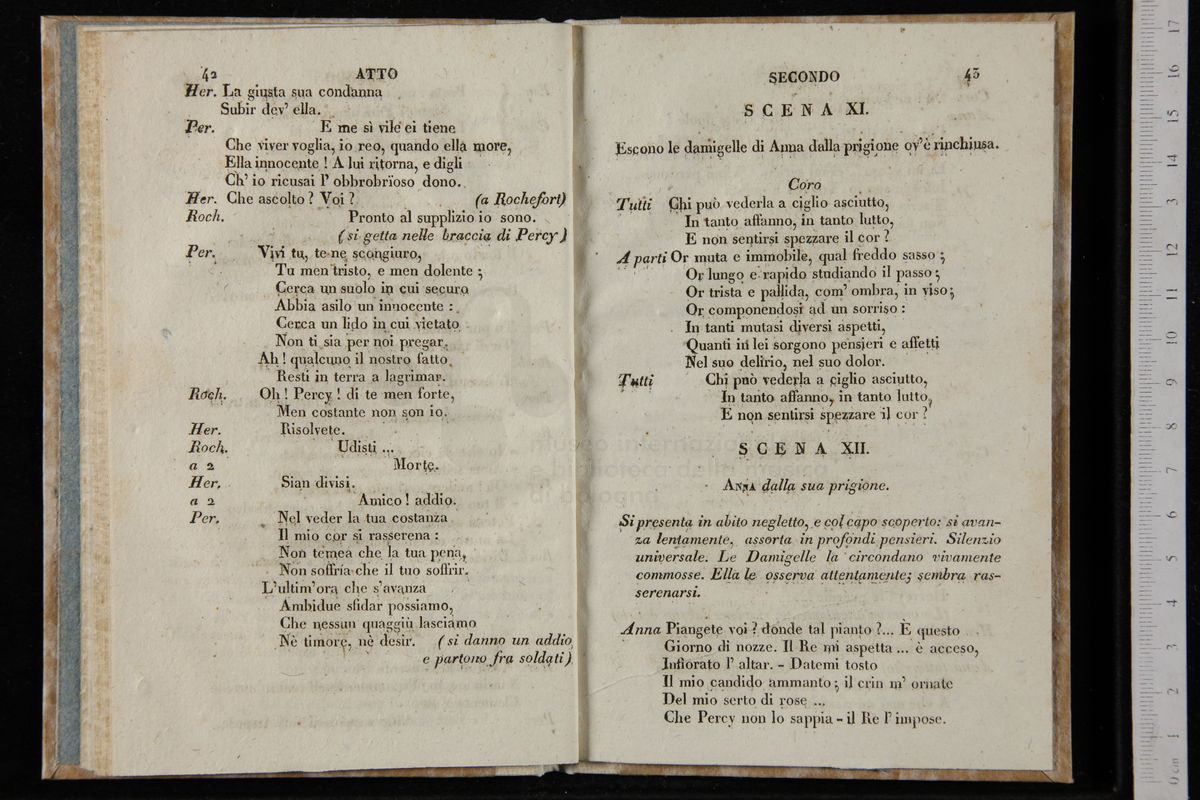 42 ATTO
Her. La giusta sua condanna
Subir dev' ella.
Per. E me sì vile ei tiene
Che viver voglia, io reo, quando ella more,
Ella innocente ! A lui ritorna, e digli
Ch' io ricusai l' obbrobrïoso dono.
Her. Che ascolto ? Voi ? (a Rochefort)
Roch. Pronto al supplizio io sono.
(si getta nelle braccia di Percy)
Per. Vivi tu, te ne scongiuro,
Tu men tristo, e men dolente ;
Cerca un suolo in cui securo
Abbia asilo un innocente :
Cerca un lido in cui vietato
Non ti sia per noi pregar.
Ah ! qualcuno il nostro fatto
Resti in terra a lagrimar.
Roch. Oh ! Percy ! di te men forte,
Men costante non son io.
Her. Risolvete.
Roch. Udisti ...
a 2 Morte.
Her. Sian divisi.
a 2 Amico ! addio.
Per. Nel veder la tua costanza
Il mio cor si rasserena :
Non temea che la tua pena,
Non soffría che il tuo soffrir.
L'ultim'ora che s'avanza
Ambidue sfidar possiamo,
Che nessun quaggiù lasciamo
Nè timore, nè desir. (si danno un addio
e partono fra soldati)
SECONDO 43
SCENA XI.
Escono le damigelle di Anna dalla prigione ov'è rinchiusa.
Coro
Tutti Chi può vederla a ciglio asciutto,
In tanto affanno, in tanto lutto,
E non sentirsi spezzare il cor ?
A parti Or muta e immobile, qual freddo sasso ;
Or lungo e rapido studiando il passo ;
Or trista e pallida, com' ombra, in viso ;
Or componendosi ad un sorriso :
In tanti mutasi diversi aspetti,
Quanti in lei sorgono pensieri e affetti
Nel suo delirio, nel suo dolor.
Tutti Chi può vederla a ciglio asciutto,
In tanto affanno, in tanto lutto,
E non sentirsi spezzare il cor ?
SCENA XII.
ANNA dalla sua prigione.
Si presenta in abito negletto, e col capo scoperto: si avan-
za lentamente, assorta in profondi pensieri. Silenzio
universale. Le Damigelle la circondano vivamente
commosse. Ella le osserva attentamente; sembra ras-
serenarsi.
Anna Piangete voi ? donde tal pianto ?... È questo
Giorno di nozze. Il Re mi aspetta ... è acceso,
Infiorato l' altar. - Datemi tosto
Il mio candido ammanto ; il crin m' ornate
Del mio serto di rose ...
Che Percy non lo sappia - il Re l' impose.
museo internazionale
e biblioteca della musica
di bologna
0 cm 1 2 3 4 5 6 7 8 9 10 11 12 13 14 15 16 17